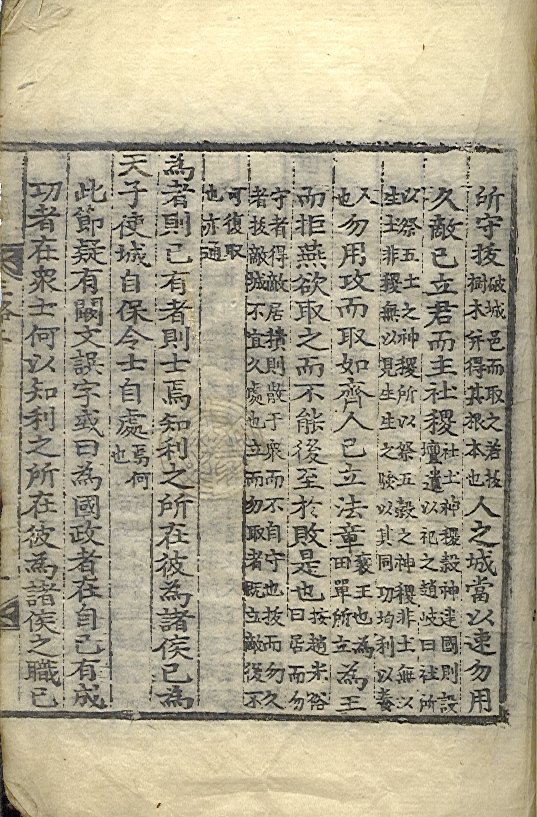 所守拔破城邑而取之若拔
樹木并得其根本也人之城當以速勿用
久敵已立君而主社稷社土神稷穀神建國則設
壇遺以祀之趙岐曰社所
以祭五土之神稷所以祭五穀之神稷非土無以
生土非稷無以見生生之驗以其同功均利以養
人
也勿用攻而取如齊人已立法章襄王也為
田單所立為王
而拒燕欲取之而不能後至於敗是也按趙米俗
曰居而勿
守者得敵居積則散于衆而不自守也拔而勿久
者拔敵城不宜久處也立而勿取者旣立敵後不
可復取
也亦通
為者則己有者則士焉知利之所在彼為諸侯己為
天子使城自保令士自處焉何
也
此節疑有闕文誤字或曰為國政者在自己有成
功者在衆士何以知利之所在彼為諸侯之職己